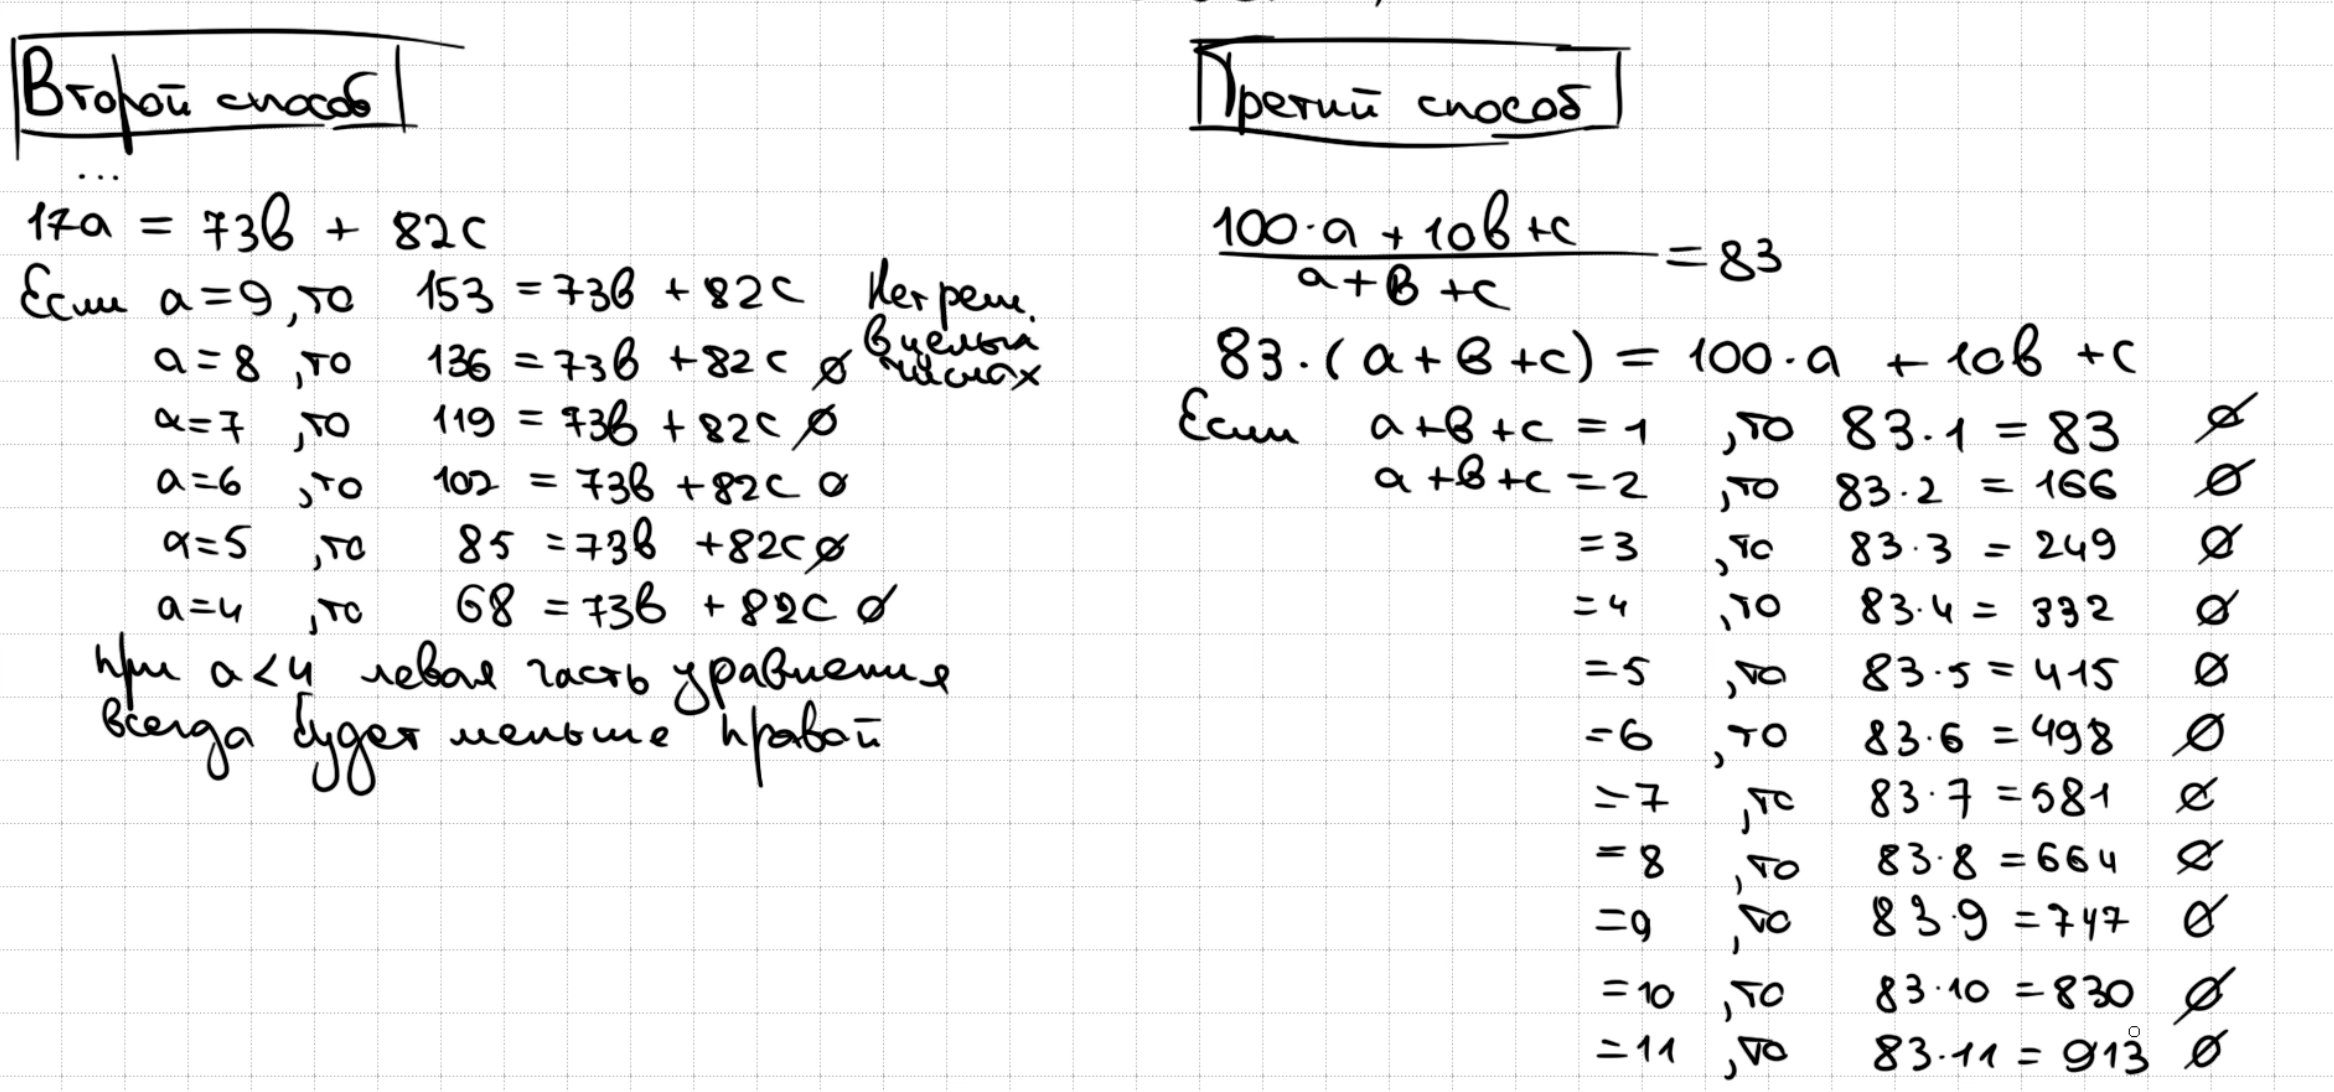 Второй способ
...
17a = 73b + 82c
Если a=9, то 153 = 73b + 82c Нет реш. в целых числах
a=8, то 136 = 73b + 82c ∅
a=7, то 119 = 73b + 82c ∅
a=6, то 102 = 73b + 82c ∅
a=5, то 85 = 73b + 82c ∅
a=4, то 68 = 73b + 82c ∅
при a<4 левая часть уравнения
всегда будет меньше правой
Третий способ
(100·a + 10b + c)/(a+b+c) = 83
83·(a+b+c) = 100·a + 10b + c
Если a+b+c = 1, то 83·1 = 83 ∅
a+b+c = 2, то 83·2 = 166 ∅
=3, то 83·3 = 249 ∅
=4, то 83·4 = 332 ∅
=5, то 83·5 = 415 ∅
=6, то 83·6 = 498 ∅
=7, то 83·7 = 581 ∅
=8, то 83·8 = 664 ∅
=9, то 83·9 = 747 ∅
=10, то 83·10 = 830 ∅
=11, то 83·11 = 913 ∅